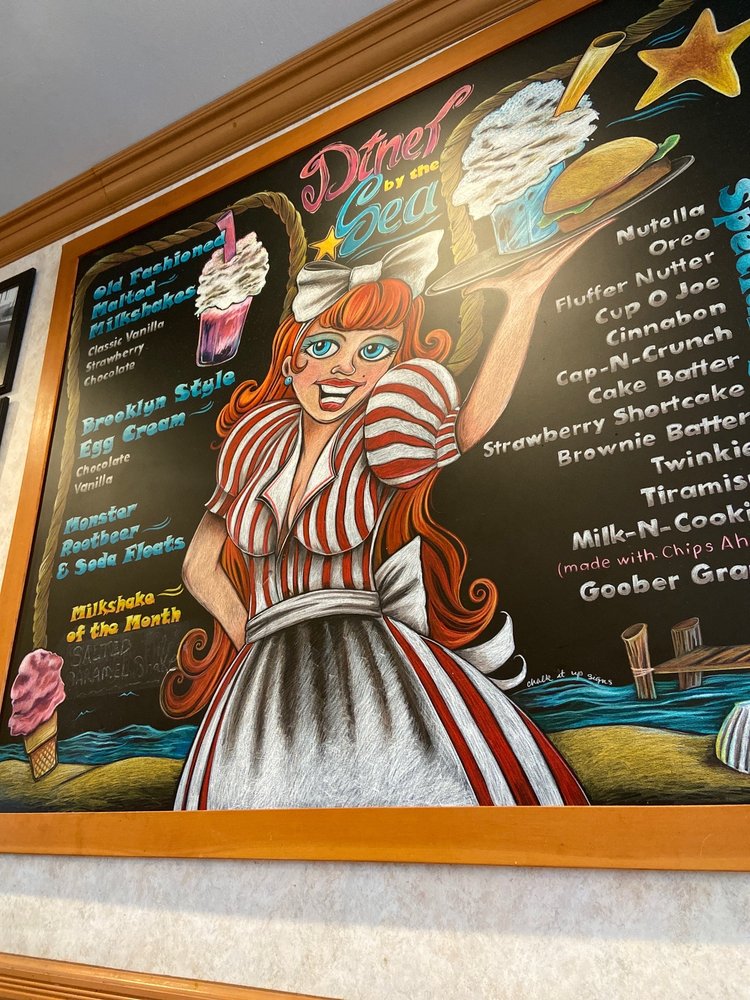 Diner
by the
Sea
Old Fashioned
Malted
Milkshakes
Classic Vanilla
Strawberry
Chocolate
Brooklyn Style
Egg Cream
Chocolate
Vanilla
Monster
Rootbeer
& Soda Floats
Milkshake
of the Month
SALTED
CARAMEL
Nutella
Oreo
Fluffer Nutter
Cup O Joe
Cinnabon
Cap-N-Crunch
Cake Batter
Strawberry Shortcake
Brownie Batter
Twinkie
Tiramisu
Milk-N-Cooki
(made with Chips Ah
Goober Gra
chalk it up signs